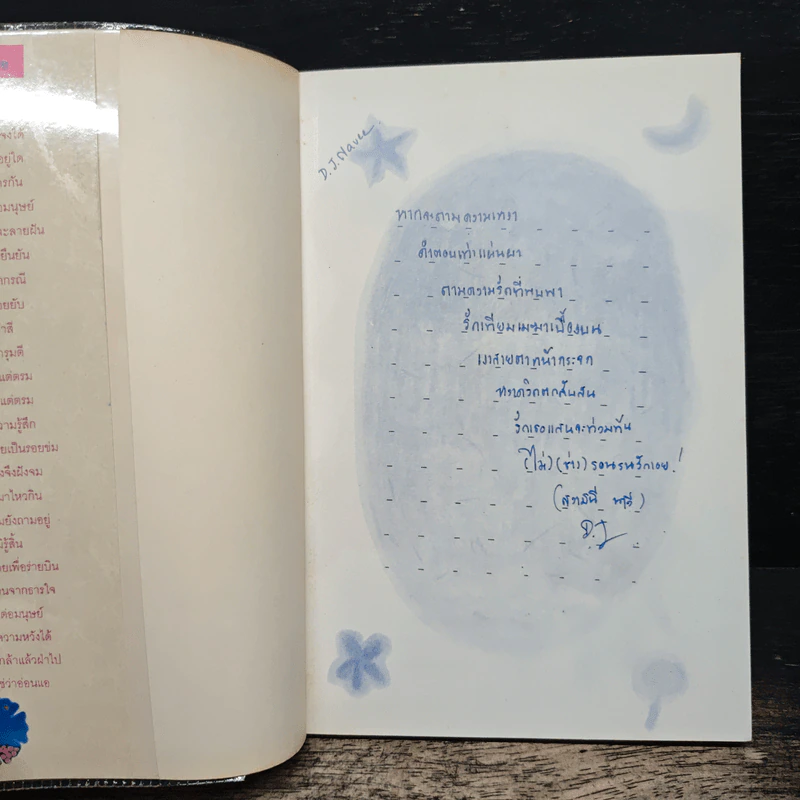 ข
จงได้
อยู่ใด
ารกัน
อมนุษย์
ะลายฝัน
ยืนยัน
ากรณี
อยยับ
าสี
ารุมตี
แต่ตรม
แต่ตรม
วามรู้สึก
ยเป็นรอยช่ม
งจึงฝังจม
มาไหวกิน
มยังถามอยู่
รู้สิ้น
ยเพื่อร่ายบิน
นจากธารใจ
ต่อมนุษย์
ความหวังได้
กล้าแล้วฝ่าไป
ช่ว่าอ่อนแอ
D.J. Navee
หากจะถามความเหงา
คำตอบเท่าแผ่นผา
ถามความรักที่พบพา
รักเทียมเมฆาเบื้องบน
เงาสายตาหน้ากระจก
หวาดวิตกสับสน
รักเธอแสนจะท่วมท้น
(ไม่) (ช่าง) รอนรนรักเอย!
นาวี)
D.J